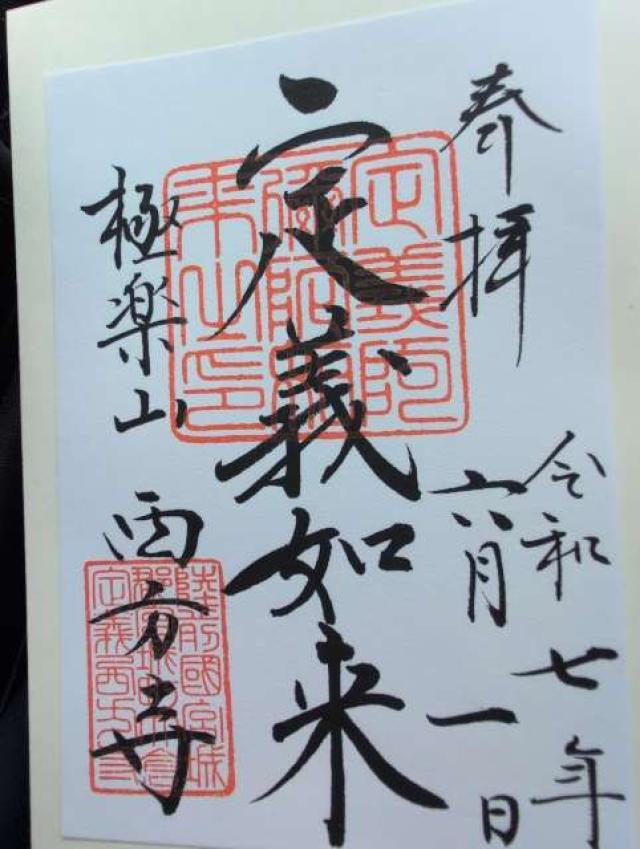 奉拝
令和七年
六月一日
定義如来
極楽山
西方寺
定義阿
弥陀如
来之印
陸前國宮城
定義西方寺